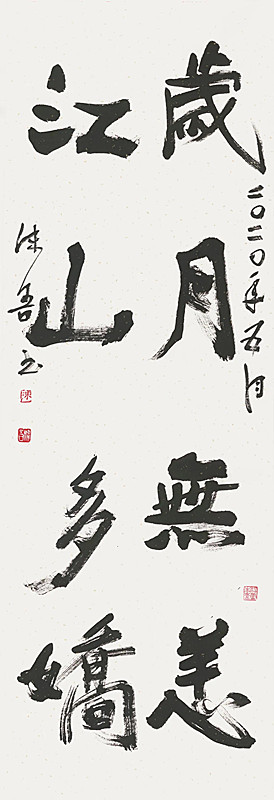 歲月無恙
江山多嬌
二〇二〇年五月